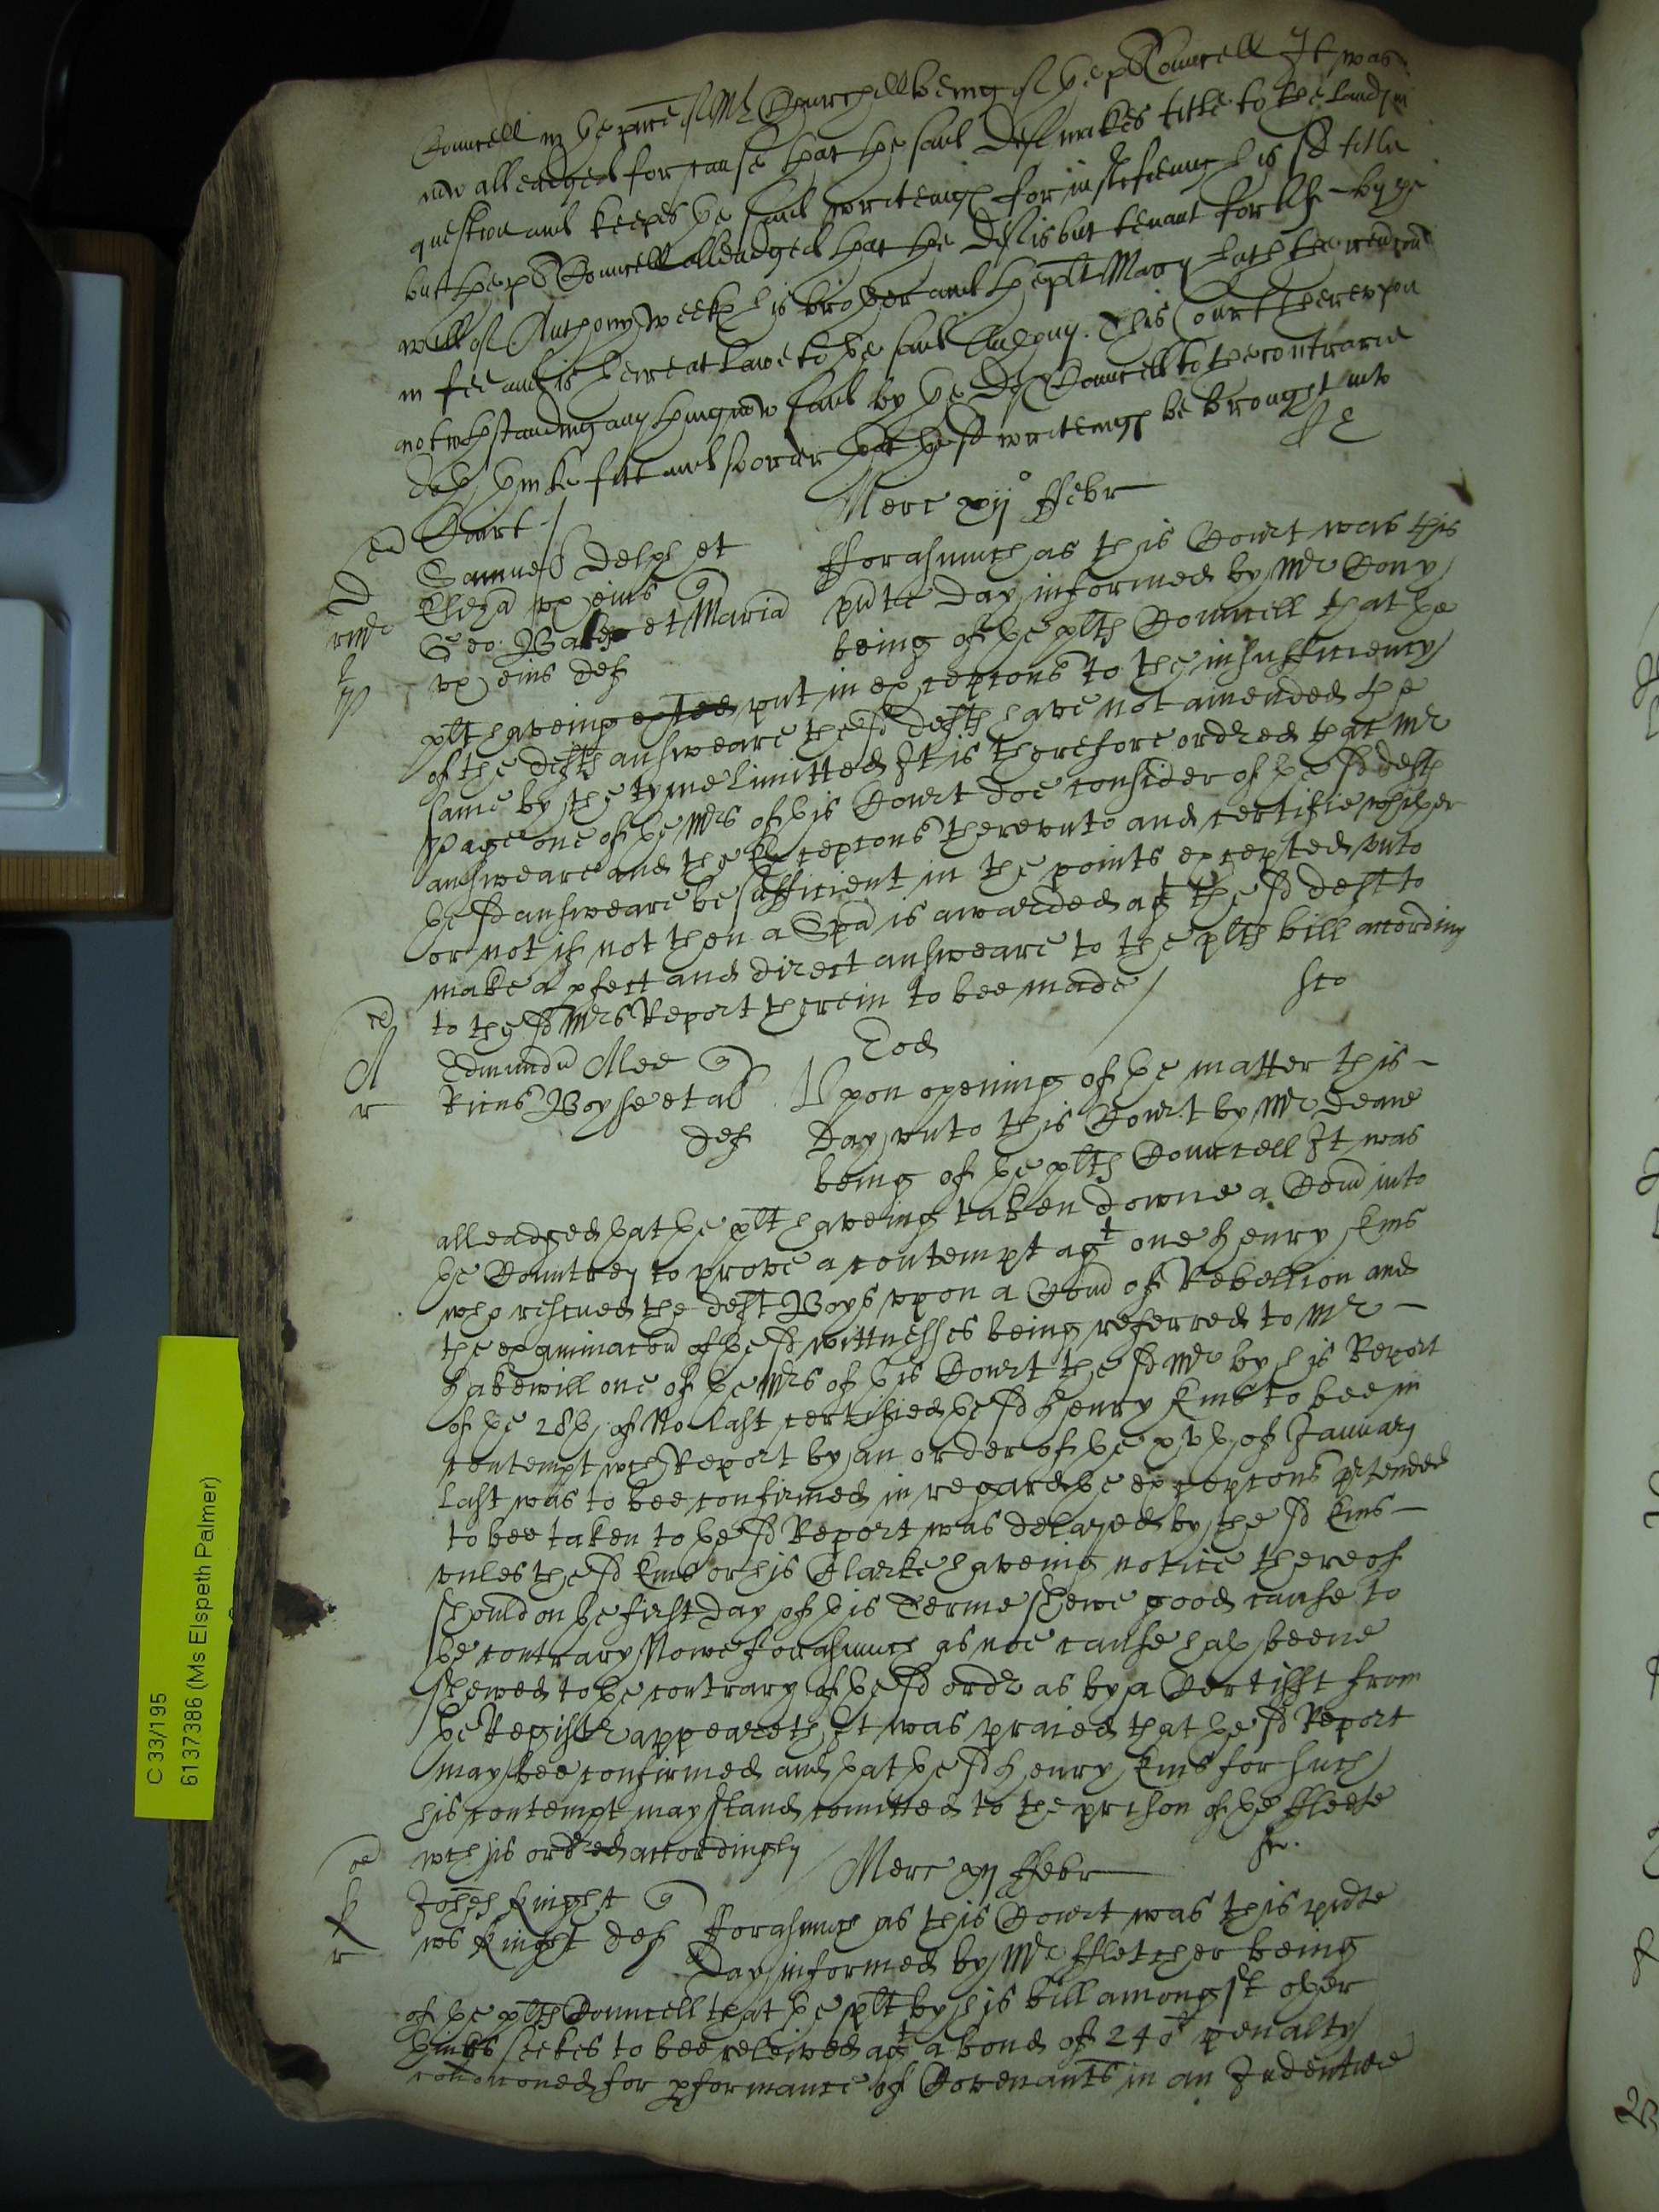 Councell in ye pnce of Mr Churchill being of ye pl Councell It was
now alleadged for cause that the said Deft makes title to the lands in
question and keepes ye said writeings for iustifieing his sd title
but the pl Councell alleadged that the Deft is but tenant for life by ye
will of Anthony Weekes his brother and the plt Mary hath the revercon
in fee and is heire at Lawe to ye said Anthony. This Court therevpon
notwthstanding any thing now said by ye Def Councell to the contrarie
doth thinke fitt and so order that the sd writeings be brought into
Court /
Merc xij° ffebr
Samuel Delph et
Eliza vx eius q
Geo: Baker et Maria
vx eius def
fforasmuch as this Court was this
pnte day informed by Mr Cony
being of ye plts Councell that ye
plt haveing put in excepcons to the insufficiency
of the defts answeare the sd defts have not amended the
same by the tyme limitted It is therefore ordred that Mr
Page one of ye Mrs of this Court doe consider of ye sd defts
answeare and the Excepcons therevnto and certifie whither
ye sd answeare be sufficient in the points excepted vnto
or not if not then a Spa is awarded agt the sd deft to
make a pfect and direct answeare to the plts bill according
to the sd Mrs Report therein to bee made /
Eod
Edmundu Alee q
Riens Boyse et al
def
Vpon opening of ye matter this
day vnto this Court by Mr Deane
being of ye plts Councell It was
alleadged yat ye plt haveing taken downe a Comn into
ye Countrey to prove a contempt agt one Henry Kins
who rescued the deft Boys vpon a Comn of Rebellion and
the examinacon of ye sd wittnesses being referred to Mr
Hakewill one of ye Mrs of this Court the sd Mr by his Report
of ye 28th of No last certified ye sd Henry Kins to bee in
contempt wch Report by an order of ye xvth of January
last was to bee confirmed in regard ye excepcons prtended
to bee taken to ye sd Report was delayed by the sd Kins
vnles the sd Kins or his Clarke haveing notice thereof
should on ye first day of this Terme shewe good cause to
ye contrary Nowe forasmuch as noe cause hath beene
shewed to ye contrary of ye sd ordr as by a Certifft from
ye Registr appeareth It was praied that ye sd Report
may bee confirmed and yat ye sd Henry Kins for such
his contempt may stand comitted to the prison of ye ffleete
wch is ordred accordingly /
Merc xij ffebr
Johes Knight q
Knight def
fforasmuch as this Court was this pnte
day informed by Mr ffletcher being
of ye plts Councell that ye plt by his bill amongst other
things seekes to bee releived agt a bond of 240l penalty
condiconed for pformance of Covenants in an Indenture
C 33/195
6137386 (Ms Elspeth Palmer)